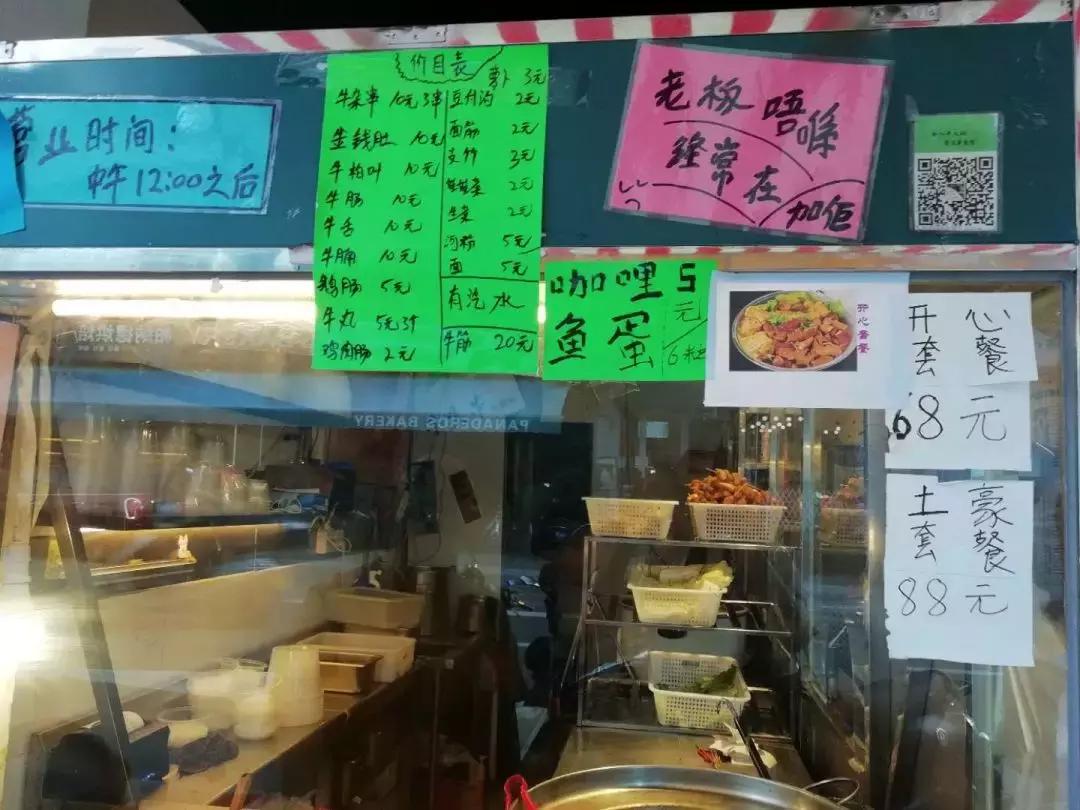 营业时间：
中午12:00之后
价目表
牛杂串 10元3串
金钱肚 10元
牛柏叶 10元
牛肠 10元
牛舌 10元
牛腩 10元
鹅肠 5元
牛丸 5元3个
鸡肉肠 2元
萝卜 3元
豆付泡 2元
面筋 2元
支竹 3元
2元
生菜 2元
河粉 5元
面 5元
有汽水
牛筋 20元
老板唔喺
经常在
加佢
咖哩
鱼蛋
5元/6粒
开心套餐
开心
套餐
68元
土豪
套餐
88元
PANADEROS BAKERY